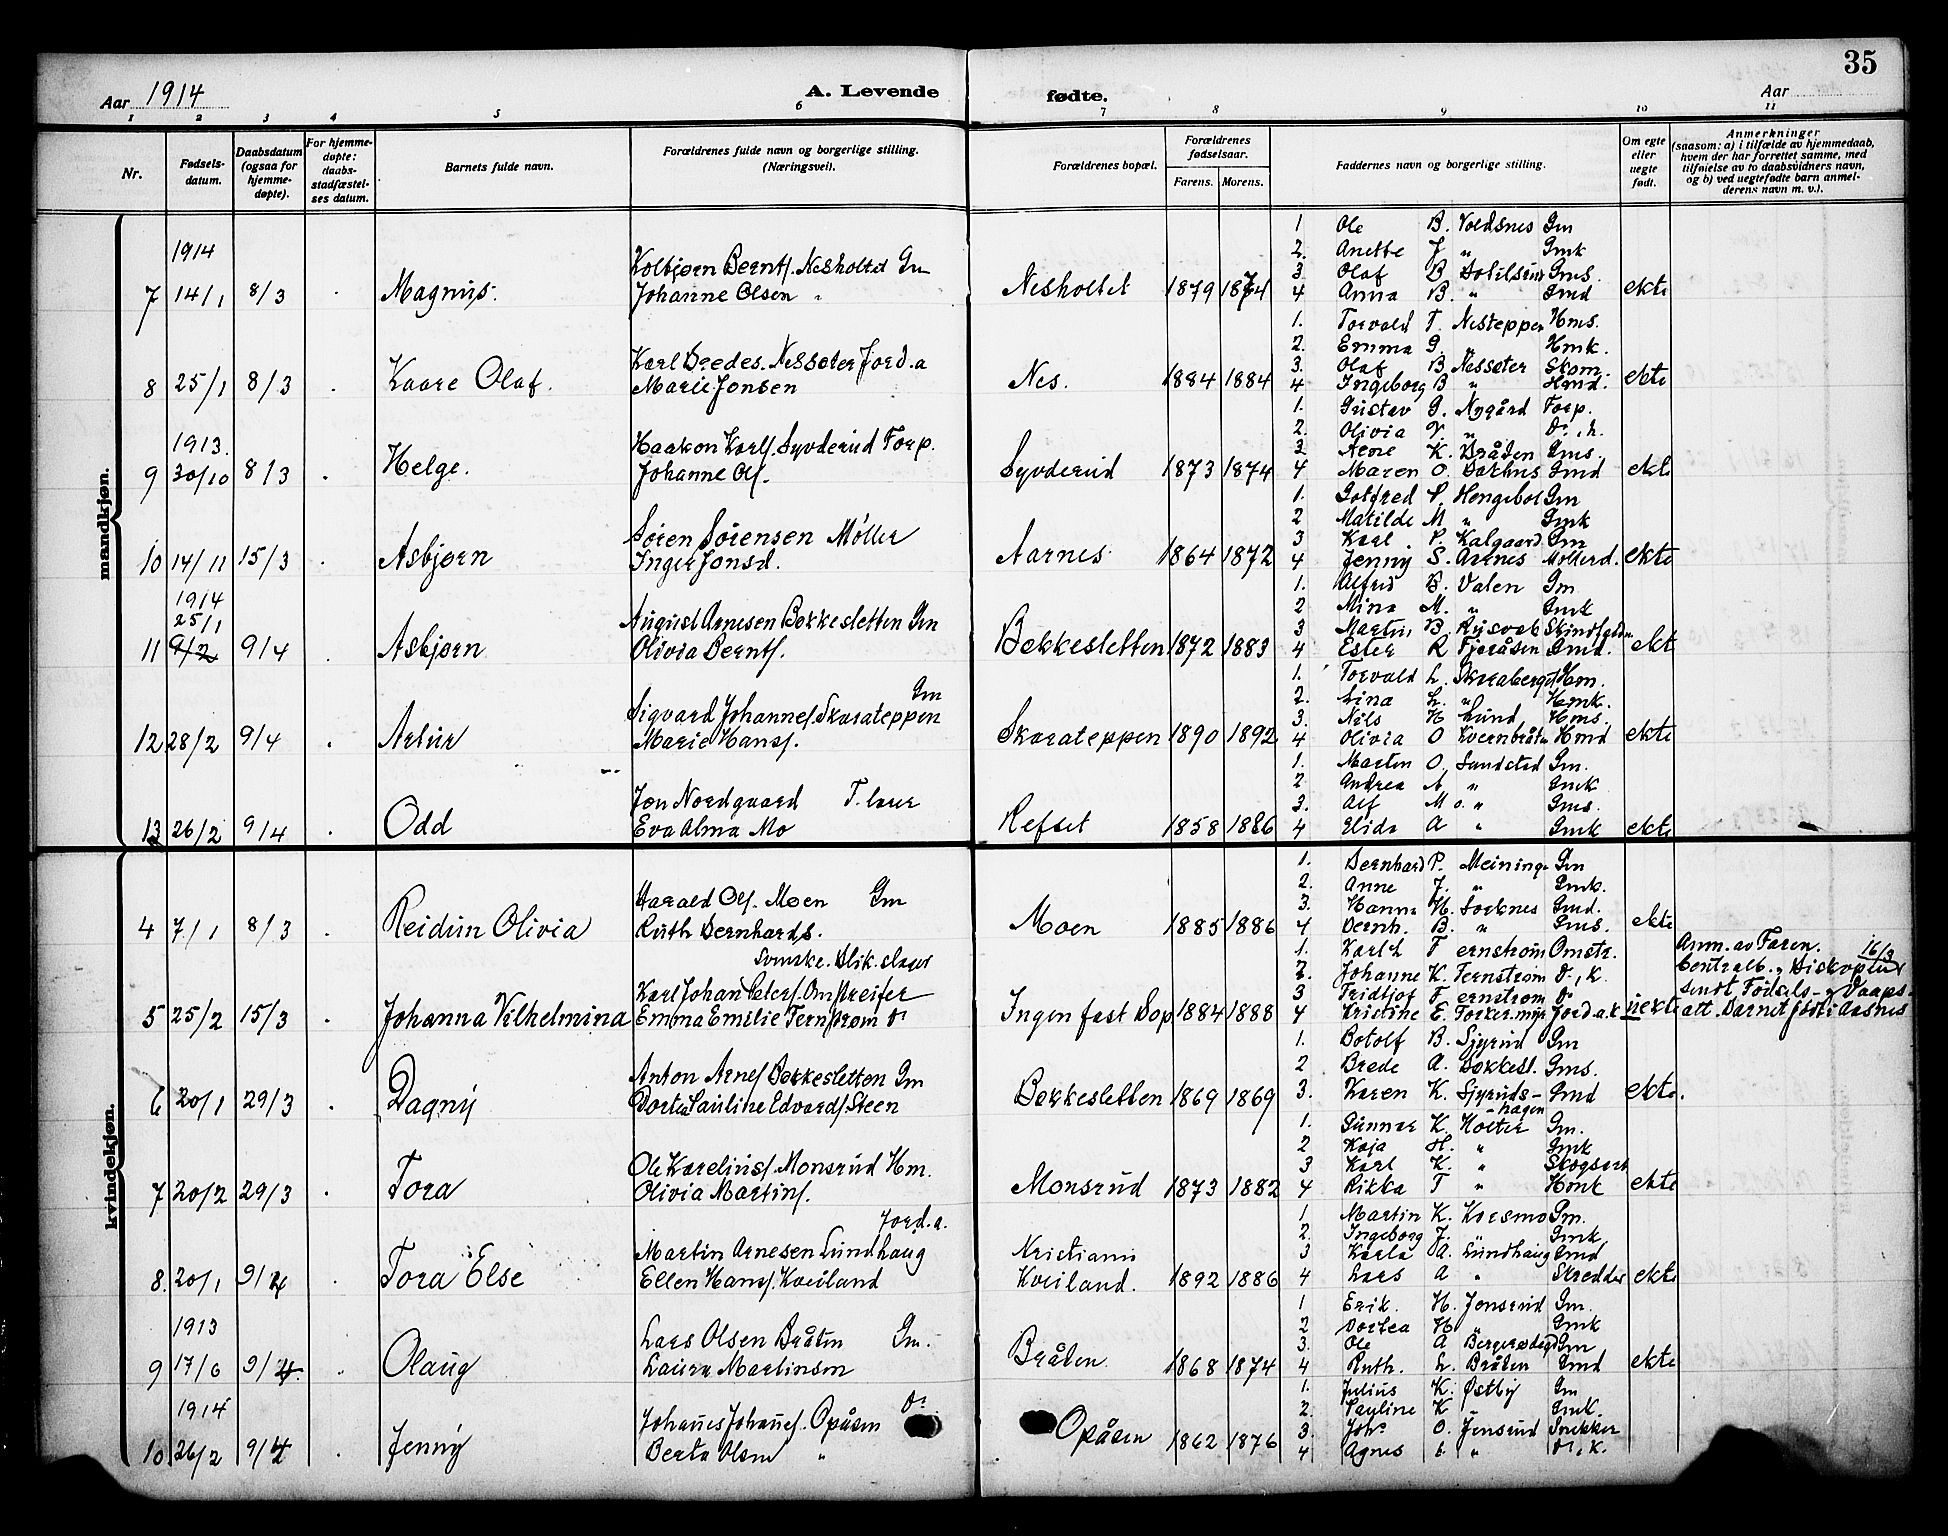 35
Aar 1914
A. Levende fødte.
Aar
1 2 3 4 5 6 7 8 9 10 11
Nr.
Fødsels-
datum.
Daabsdatum
(ogsaa for
hjemme-
døpte).
For hjemme-
døpte:
daabs-
stadfæstel-
ses datum.
Barnets fulde navn.
Forældrenes fulde navn og borgerlige stilling.
(Næringsvei).
Forældrenes bopæl.
Forældrenes
fødselsaar.
Farens. Morens.
Faddernes navn og borgerlige stilling.
Om egte
eller
uegte
født.
Anmerkninger
(saasom: a) i tilfælde av hjemmedaab,
hvem der har forrettet samme, med
tilføielse av to daabsvidners navn,
og b) ved uegtefødte barn anmel-
derens navn m. v.).
mandkjøn.
1914
7 14/1 8/3 Magnus.
Kolbjørn Bernts. Nesholtet Gm
Johanne Olsen "
Nesholtet 1879 1874 ekte
1 Ole B. Voldsnes Gm
2. Anette J " Gmk
3 Olaf B Gms.
4 Anna B. " Gmd
8 25/1 8/3 Kaare Olaf.
Karl Bredes. Nessæter Jord.a
Marie Jonsen
Nes. 1884 1884 ekte
1. Torvald T. Nesteppen Hms.
2. Emma G. " Hmk.
3. Olaf B Nessæter Skom.
4 Ingeborg B " Hmd.
1913.
9 30/10 8/3 Helge.
Haakon Karls. Syverud Forp.
Johanne Ols.
Syverud 1873 1874 ekte
1. Gustav G. Nygård Forp.
2. Olivia " D., k.
3 K. Bråten Gms.
4 Maren O. Gmd
10 14/11 15/3 Asbjørn
Søren Sørensen Møller
Inger Jonsd.
Aarnes 1864 1872 ekte
1. Gotfred P. Gm
2 Matilde M " Gmk
3 Karl P. Kalgaard Gm
4 Jenny S. Aarnes Møllerd.
1914
25/1
11 9/2 9/4 Asbjørn
August Arnesen Bekkesletten Gm
Olivia Bernts.
Bekkesletten 1872 1883 ekt
1. Alfred B. Valen Gm
2 Mina M. " Gmk
3 Martin B.
4 Ester R Fjeråsen Gmd.
12 28/2 9/4 Artur
Gm
Sigvard Johannes. Skarateppen
Marie Hans.
Skarateppen 1890 1892 ekte
1. Torvald L. Hm.
2. Lina L. " Hmk.
3. Nils H Lund Hms.
4 Olivia O Kvernbråt Hmd
13 26/2 9/4 Odd
Jon Nordgaard T. lærer
Eva Alma Mo
Refset 1858 1886 ekte
1. Marten O. Sandsted Gm.
2 Andrea A " Gmk
3. Alf M o. " Gms.
4 Elida A " Gmk
kvindekjøn.
4 7/1 8/3 Reidun Olivia
Harald Ols. Moen Gm
Ruth Bernhards.
Moen 1885 1886 ekte
1. Bernhard P. Meininge Gm
2. Anne J. " Gmk.
3. Hanna H. Sørknes Gmd.
4 Bernh. B. " Gms.
Svenske. Blik.slager
5 25/2 15/3 Johanna Vilhelmina
Karl Johan Peters. Omstreifer
Emma Emilie Fernstrøm do
Ingen fast Bop 1884 1888 uekte
1. Karl L Fernstrøm Omstr.
2. Johanne K. Fernstrøm D., K.
3 Fridtjof Fernstrøm do
4 Kristine E. Torkermyr Jord.a.k
Anm. av Faren. 16/3
Centralb. " Biskoplur
sendt Fødsels- og Daaps-
att. Barnet født i Aasnes
6 20/1 29/3 Dagny
Anton Arnes. Bekkesletten Gm
Dortea Pauline Edvards. Steen
Bekkesletten 1869 1869 ekte.
1. Botolf B. Sjyrud Gm
2 Brede A. Bekkesl. Gms.
3. Karen K. Sjyruds- Gmd
-hagen
7 20/2 29/3 Tora
Ole Karelius. Monsrud Hm.
Olivia Martins.
Monsrud 1873 1882 ekte
1. Gunnar K. Holter Gm.
2 Kaja H. " Gmk
3 Karl K. " Skogsarb
4 Rikka T " Hmk
8. 20/1 9/4 Tora Else
Jord.a.
Martin Arnesen Lundhaug
Ellen Hans. Kveiland
Kristiania
Kveiland. 1892 1886 ekte
1 Martin K. Korsmo Gm.
2. Ingeborg J. Gmk
3 Karla A. Lundhaug Gmd
4 Lars A " Skredder
1913
9 17/6 9/4. Olaug
Lars Olsen Bråten Gm.
Laura Martinsen
Bråten. 1868 1874 ekte
1 Erik. H. Jonsrud Gm.
2 Dortea H " Gmk
3. Ole A Gm
4 Ruth. L. Bråten Gmd
1914
10 26/2 9/4 Jenny
Johañes Johañes. Opåsen do
Berta Olsen "
Opåsen 1862 1876
1. Julius K. Østby Gm
2. Pauline K Gmk.
3. Johs O. Jensrud Snekker
4 Agnes " D., K.